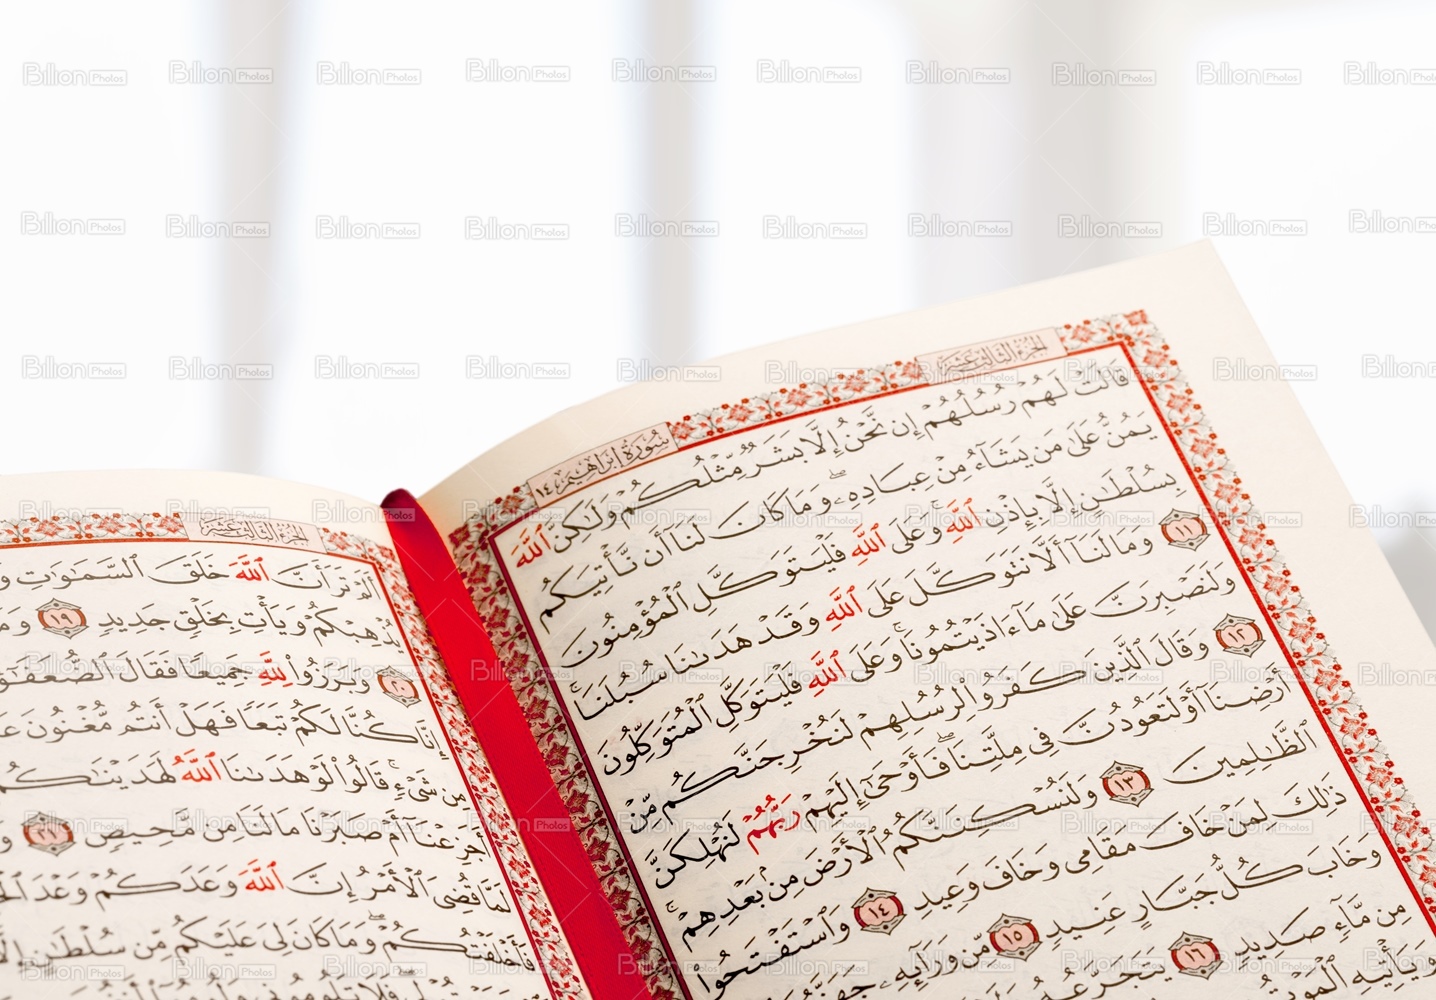 الجزء الثالث عشر
سورة إبراهيم ١٤
قَالَتْ لَهُمْ رُسُلُهُمْ إِن نَّحْنُ إِلَّا بَشَرٌ مِّثْلُكُمْ وَلَٰكِنَّ ٱللَّهَ
يَمُنُّ عَلَىٰ مَن يَشَآءُ مِنْ عِبَادِهِۦ ۖ وَمَا كَانَ لَنَآ أَن نَّأْتِيَكُم
بِسُلْطَٰنٍ إِلَّا بِإِذْنِ ٱللَّهِ ۚ وَعَلَى ٱللَّهِ فَلْيَتَوَكَّلِ ٱلْمُؤْمِنُونَ
١١ وَمَا لَنَآ أَلَّا نَتَوَكَّلَ عَلَى ٱللَّهِ وَقَدْ هَدَىٰنَا سُبُلَنَا ۚ
وَلَنَصْبِرَنَّ عَلَىٰ مَآ ءَاذَيْتُمُونَا ۚ وَعَلَى ٱللَّهِ فَلْيَتَوَكَّلِ ٱلْمُتَوَكِّلُونَ
١٢ وَقَالَ ٱلَّذِينَ كَفَرُوا۟ لِرُسُلِهِمْ لَنُخْرِجَنَّكُم مِّنْ
أَرْضِنَآ أَوْ لَتَعُودُنَّ فِى مِلَّتِنَا ۖ فَأَوْحَىٰٓ إِلَيْهِمْ رَبُّهُمْ لَنُهْلِكَنَّ
ٱلظَّٰلِمِينَ ١٣ وَلَنُسْكِنَنَّكُمُ ٱلْأَرْضَ مِنۢ بَعْدِهِمْ ۚ
ذَٰلِكَ لِمَنْ خَافَ مَقَامِى وَخَافَ وَعِيدِ ١٤ وَٱسْتَفْتَحُوا۟
وَخَابَ كُلُّ جَبَّارٍ عَنِيدٍ ١٥ مِّن وَرَآئِهِۦ جَهَنَّمُ
مِن مَّآءٍ صَدِيدٍ ١٦ يَتَجَرَّعُهُ
وَيَأْتِيهِ ٱلْمَوْتُ
الجزء الثالث عشر
أَلَمْ تَرَ أَنَّ ٱللَّهَ خَلَقَ ٱلسَّمَٰوَٰتِ
يُذْهِبْكُمْ وَيَأْتِ بِخَلْقٍ جَدِيدٍ ١٩
٢٠ وَبَرَزُوا۟ لِلَّهِ جَمِيعًا فَقَالَ
إِنَّا كُنَّا لَكُمْ تَبَعًا فَهَلْ أَنتُم مُّغْنُونَ
مِن شَىْءٍ ۚ قَالُوا۟ لَوْ هَدَىٰنَا ٱللَّهُ لَهَدَيْنَٰكُمْ
أَجَزِعْنَآ أَمْ صَبَرْنَا مَا لَنَا مِن مَّحِيصٍ ٢١
لَمَّا قُضِىَ ٱلْأَمْرُ إِنَّ ٱللَّهَ وَعَدَكُمْ وَعْدَ
فَأَخْلَفْتُكُمْ ۖ وَمَا كَانَ لِىَ عَلَيْكُم مِّن سُلْطَٰنٍ
فَلَا تَلُومُونِى